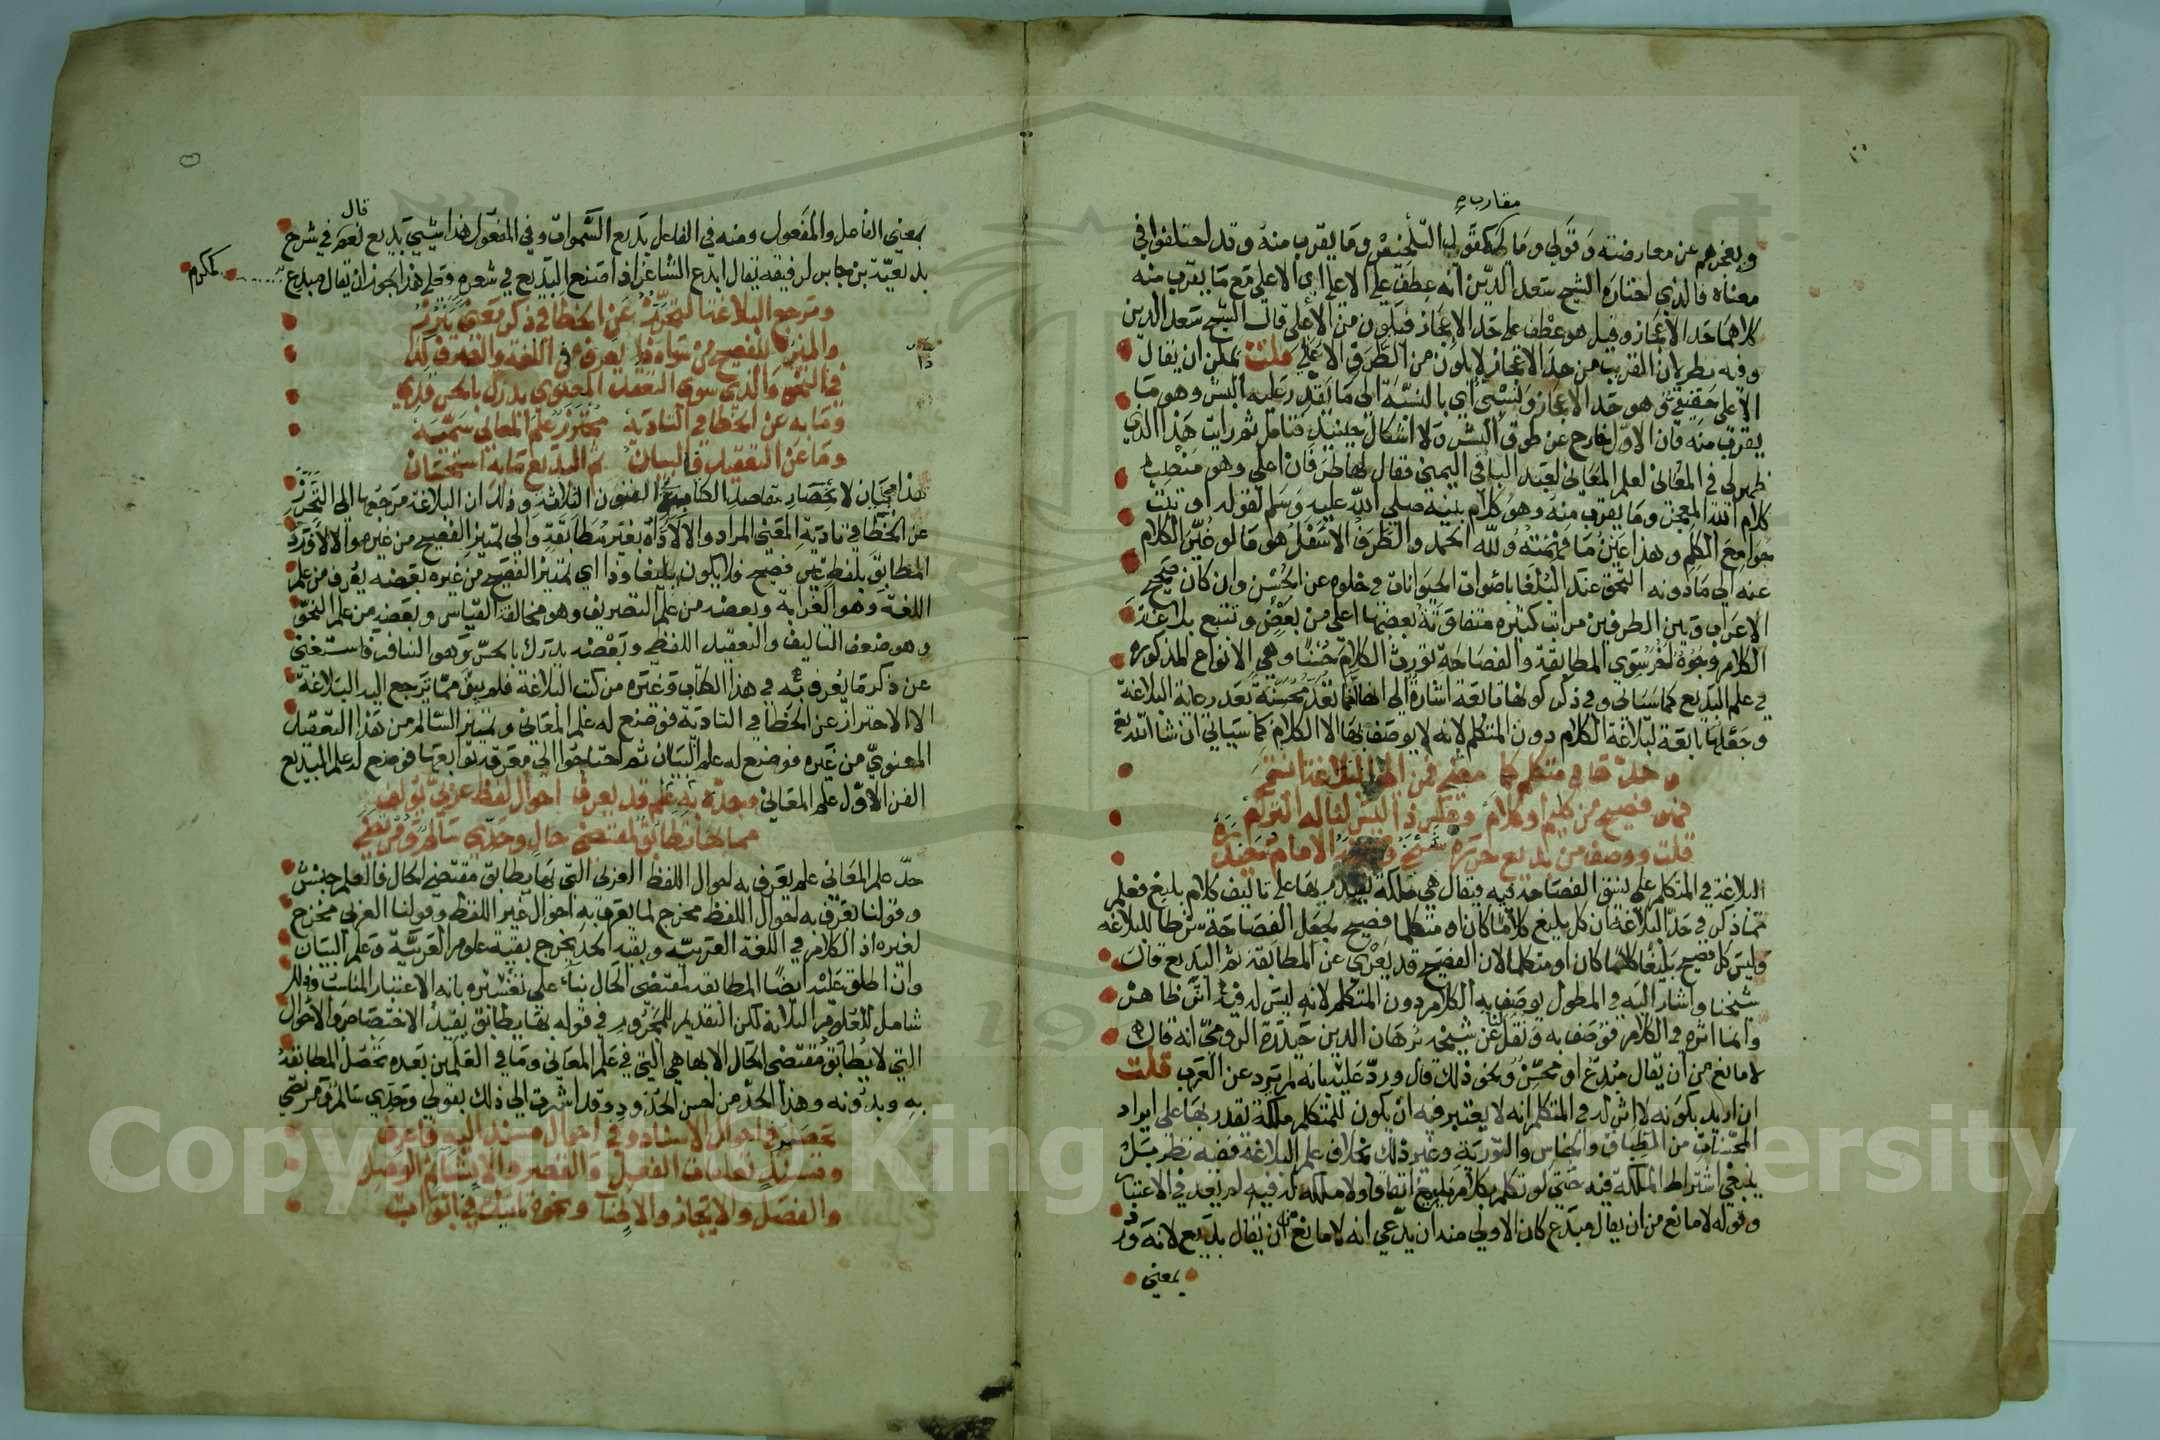 مقاربه
ويعجزهم عن معارضته وقولي وما له مقارب كقول التلخيص وما يقرب منه وقد اختلفوا في
معناه فالذي اختاره الشيخ سعد الدين انه عطف على الاعلى اي الاعلى مع ما يقرب منه
كلاهما حد الاعجاز وقيل هو عطف على حد الاعجاز فيكون من الاعلى قال الشيخ سعد الدين
وفيه نظر لان القريب من حد الاعجاز لا يكون من الطرف الاعلى قلت يمكن ان يقال
الاعلى حقيقي وهو حد الاعجاز ونسبي اي بالنسبة الى ما يقدر عليه البشر وهو ما
يقرب منه فان الاول خارج عن طوق البشر ولا اشكال حينئذ فتامل ثم رايت هذا الذي
ظهر لي في المعاني لعلم المعاني لعبد الباقي اليمني فقال لها طرفان اعلى وهو منصب
كلام الله المعجز وما يقرب منه وهو كلام نبيه صلى الله عليه وسلم لقوله اوتيت
جوامع الكلم وهذا عين ما فهمته ولله الحمد والطرف الاسفل هو ما لو غير الكلام
عنه الى ما دونه التحق عند البلغا باصوات الحيوانات في خلوه عن الحسن وان كان صحيح
الاعراب وبين الطرفين مراتب كثيرة متفاوتة بعضها اعلى من بعض وتتبع بلاغة
الكلام وجوه اخر سوى المطابقة والفصاحة تورث الكلام حسنا وهي الانواع المذكورة
في علم البديع كما سياتي وفي ذكر كونها تابعة اشارة الى انها انما تعد محسنة بعد رعاية البلاغة
وجعلها تابعة لبلاغة الكلام دون المتكلم لانه لا يوصف بها الا الكلام كما سياتي ان شا الله تع
وحدها في متكلم كما مضى فمن الى البلاغة انتمى
فهو فصيح من كليم او كلام وعكس ذا ليس يناله التزام
قلت ووصف من بديع حرره شيخي وشيخه الامام حيدره
البلاغة في المتكلم على نسق الفصاحة فيه فيقال هي ملكة يقتدر بها على تاليف كلام بليغ فعلم
مما ذكر في حد البلاغة ان كل بليغ كلاما كان او متكلما فصيح لجعل الفصاحة شرطا للبلاغة
وليس كل فصيح بليغا كلاما كان او متكلما لان الفصيح قد يعرى عن المطابقة ثم البديع قال
شيخنا واشار اليه في المطول يوصف به الكلام دون المتكلم لانه ليس له فيه اثر ظاهر
وانما اثره في الكلام فوصف به ونقل لنا عن شيخه برهان الدين حيدرة الرومي انه قال
لا مانع من ان يقال مبدع او محسن ونحو ذلك قال ورد عليه بانه لم يرد عن العرب قلت
ان اريد بكونه لا اثر له في المتكلم انه لا يعتبر فيه ان يكون للمتكلم ملكة يقدر بها على ايراد
المحسنات من الطباق والجناس والتورية وغير ذلك بخلاف علم البلاغة ففيه نظر بل
ينبغي اشتراط الملكة فيه حتى لو تكلم بكلام بليغ اتفاقا ولا ملكة له فيه لم يعد في الاعتبار
وقوله لا مانع من ان يقال مبدع كان الاولى منه ان يدعي انه لا مانع من ان يقال بديع لانه ورد
بمعنى
بمعنى الفاعل والمفعول ومنه في الفاعل بديع السموات وفي المفعول هذا شيء بديع نعم قال في شرح
بديعية بن جابر لرفيقه يقال ابدع الشاعر اذا صنع البديع في شعره وعلى هذا يجوز ان يقال مبدع
ومرجع البلاغة التحرز عن الخطا في ذكر معنى يبرز
والميز للفصيح من سواه ذا يعرف في اللغة والصرف كذا
في النحو والذي سوى التعقد المعنوي يدرك بالحس قد
وما به عن الخطا في التادية محترز علم المعاني سميه
وما عن التعقيد فالبيان ثم البديع ما به استحسان
هذا بيان لانحصار مقاصد الكتاب في الفنون الثلاثة وذلك ان البلاغة مرجعها الى التحرز
عن الخطا في تادية المعنى المراد والا لاداه بغير مطابقة والى تمييز الفصيح من غيره والا لاورد
المطابق بلفظ غير فصيح فلا يكون بليغا وذا اي تمييز الفصيح من غيره بعضه يعرف من علم
اللغة وهو الغرابة وبعضه من علم التصريف وهو مخالفة القياس وبعضه من علم النحو
وهو ضعف التاليف والتعقيد اللفظي وبعضه يدرك بالحس وهو التنافر فاستغنى
عن ذكر ما يعرف به في هذا الكتاب وغيره من كتب البلاغة فلم يبق مما ترجع اليه البلاغة
الا الاحتراز عن الخطا في التادية فوضع له علم المعاني وتمييز السالم من هذا التعقيد
المعنوي من غيره فوضع له علم البيان ثم احتاجوا الى معرفة توابعها فوضع له علم البديع
الفن الاول علم المعاني وحده علم قد يعرف احوال لفظ عربي يؤلف
مما بها تطابق لمقتضى حال وحدي سالم ومرتضى
حد علم المعاني علم يعرف به احوال اللفظ العربي التي بها يطابق مقتضى الحال فالعلم جنس
وقولنا يعرف به احوال اللفظ مخرج لما يعرف به احوال غير اللفظ وقولنا العربي مخرج
لغيره اذ الكلام في اللغة العربية وبقية الحد يخرج بقية علوم العربية وعلم البيان
وان اطلق عليه ايضا المطابقة لمقتضى الحال بناء على تفسيره بانه الاعتبار المناسب
شامل للعلوم الثلاثة لكن التقديم للمجرور في قوله بها يطابق يفيد الاختصاص والاحوال
التي لا يطابق مقتضى الحال الا بها هي التي في علم المعاني وما في العلمين بعده تحصل المطابقة
به وبدونه وهذا الحد من احسن الحدود وقد اشرت الى ذلك بقولي وحدي سالم ومرتضى
يحصر في احوال الاسناد وفي احوال مسند اليه فاعرف
ومسند تعلقات الفعل والقصر والانشاء ثم الوصل
والفصل والايجاز والاطناب ونحوه تاتيك في ابواب